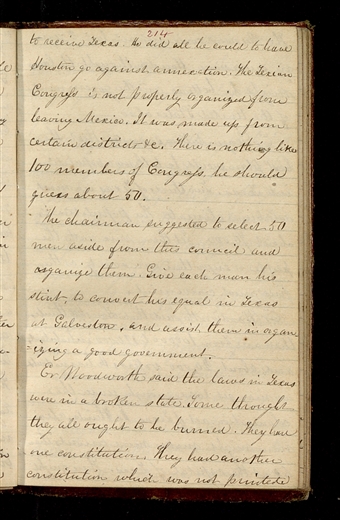 214
to receive Texas. He did all he could to have
Houston go against annexation. The Texian
Congress is not properly organized from
leaving Mexico. It was made up from
certain districts &c. There is nothing like
100 members of Congress. he should
guess about 50.
The chairman suggested to select 50
men aside from this council and
organize them. Give each man his
stint, to convert his equal in Texas
at Galveston, and assist them in organ
izing a good government.
Er Woodworth said the laws in Texas
were in a broken state. Some through
they all ought to be burned. They have
one constitution. They had another
constitution which was not printed